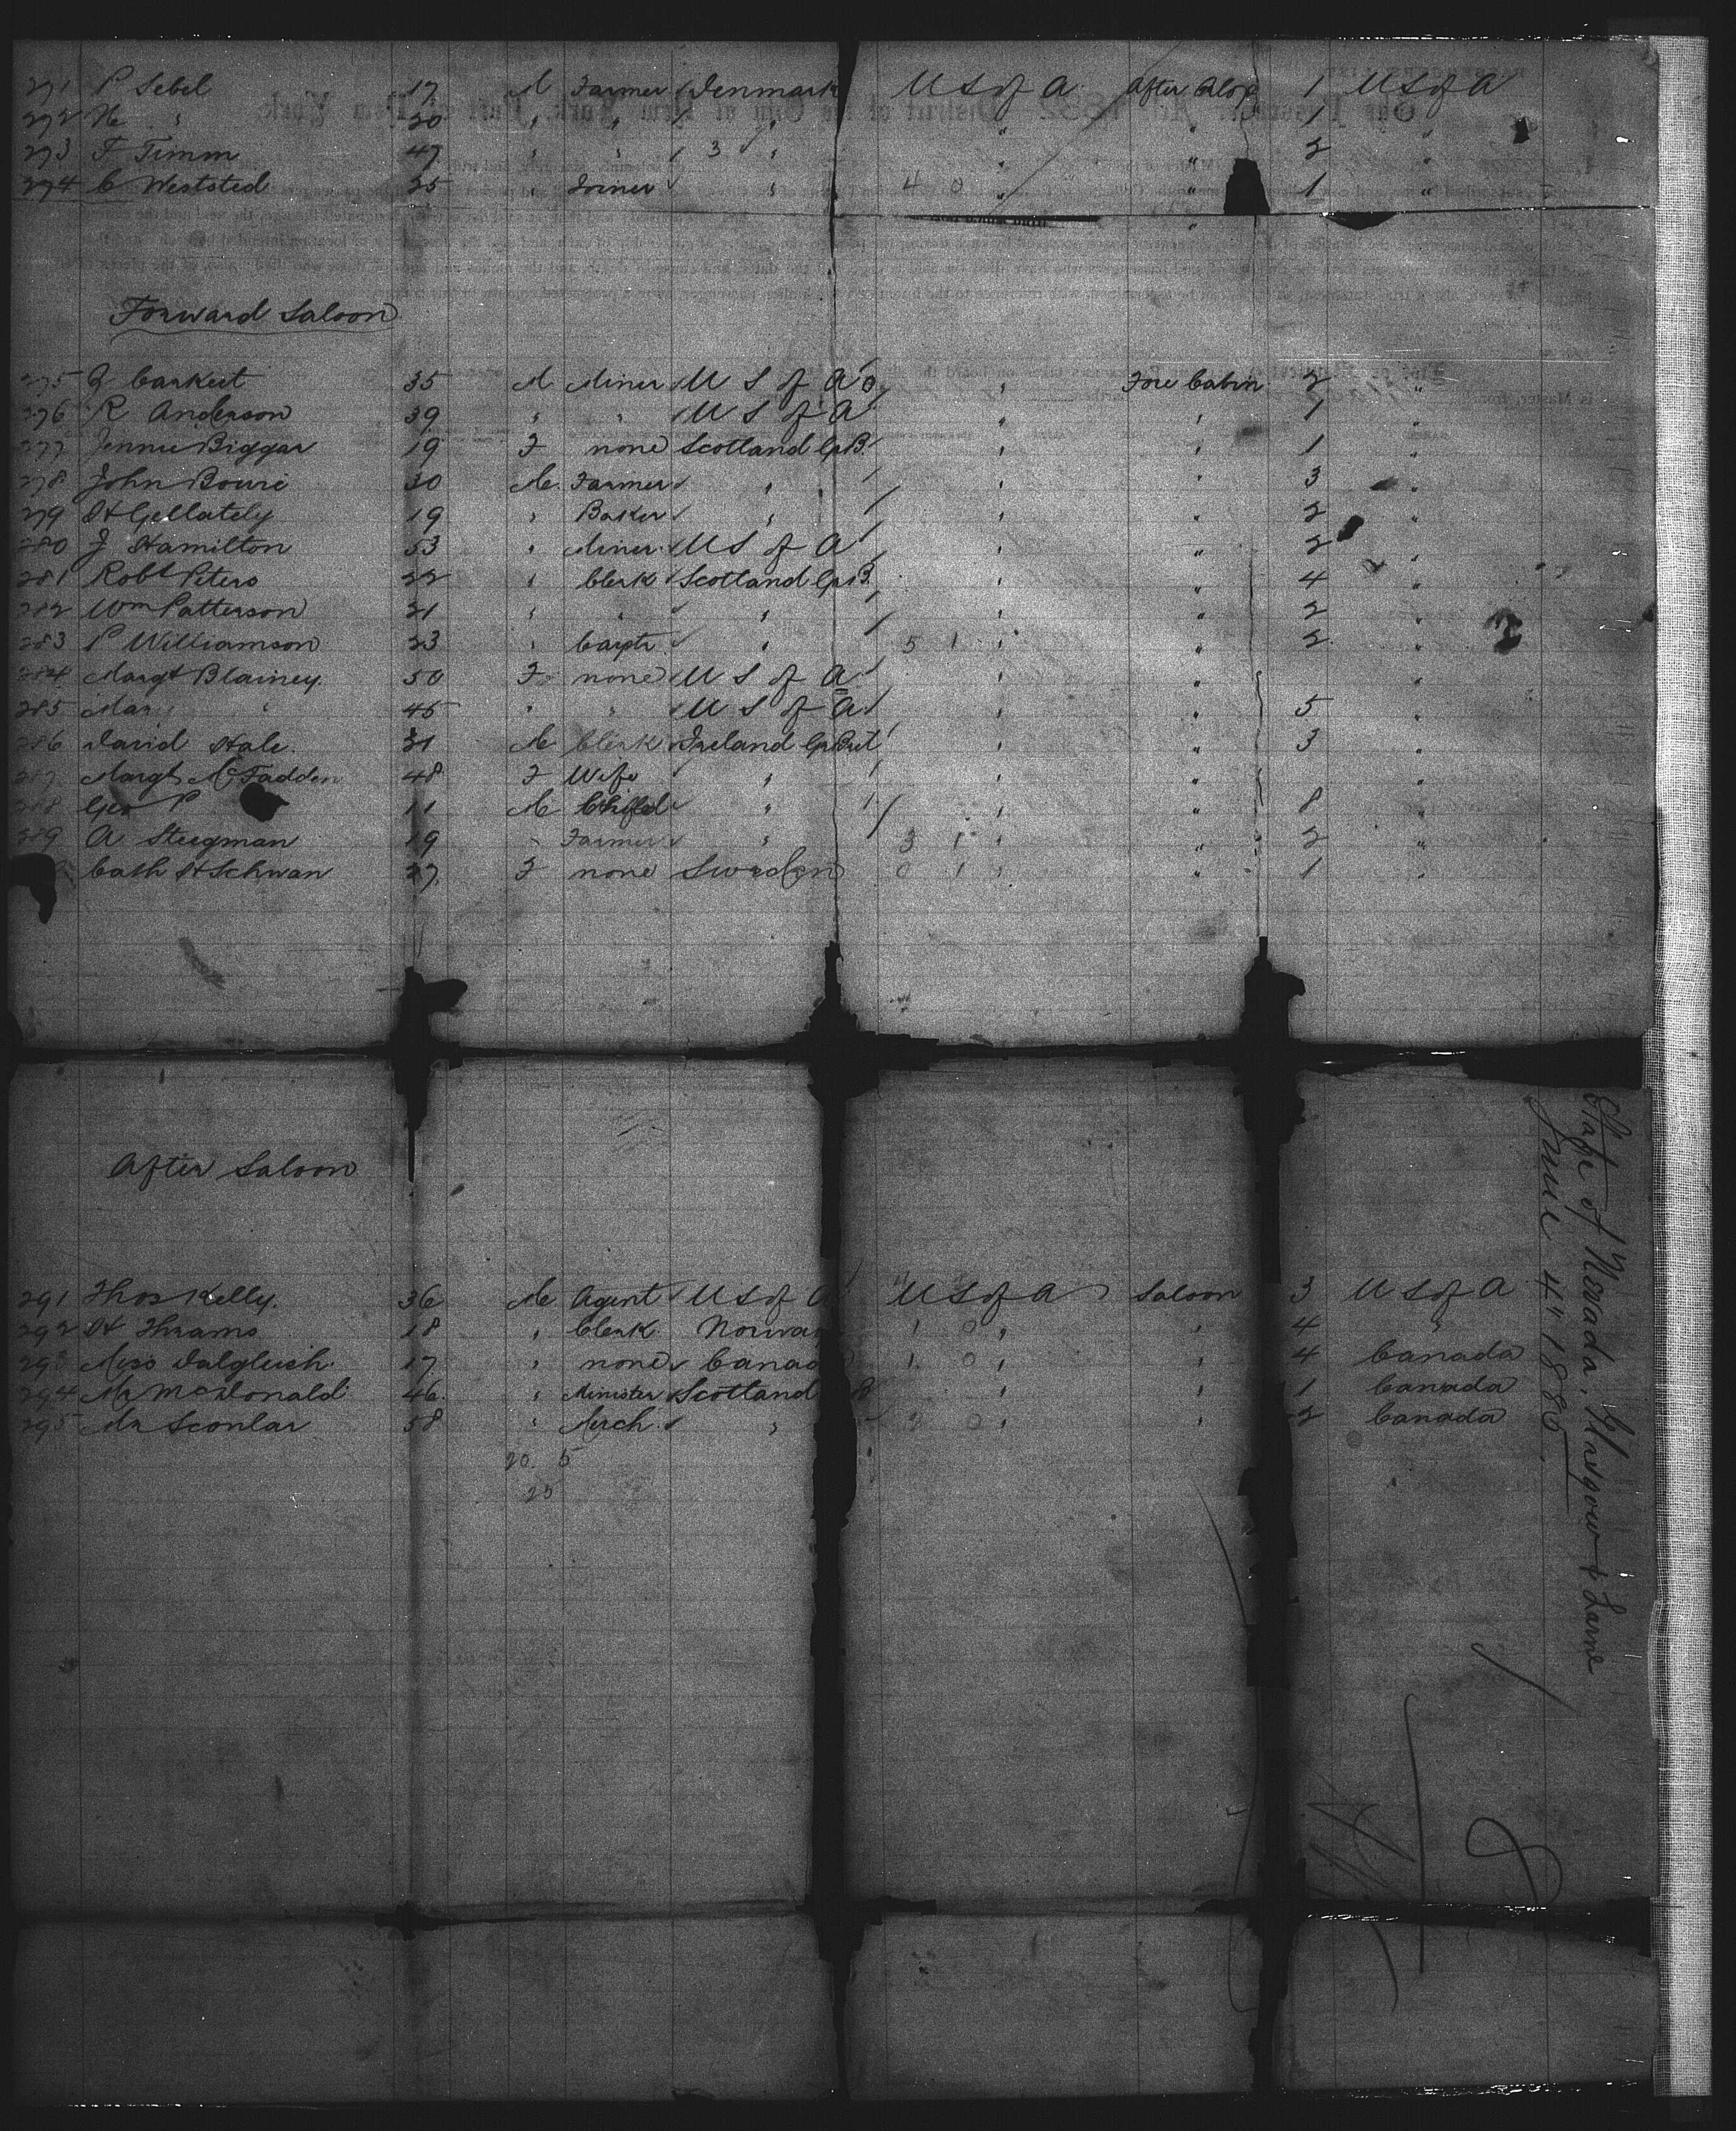 271 P Sebel 17 M Farmer Denmark U S of A After 1 U S of A
272 N " 20 " " " " " 1 "
273 F Timm 47 " " 3 " " " 2 "
274 C Weststed 25 " Joiner " 4 0 " " 1 "
Forward Saloon
275 J Carkeet 35 M Miner U S of A " Fore Cabin 2 "
276 R Anderson 39 " " U S of A " " 1 "
277 Jennie Biggar 19 F none Scotland Gr B. " " 1 "
278 John Bowie 30 M Farmer " " " 3 "
279 H Gellately 19 " Baker " " " 2 "
280 J Hamilton 53 " Miner U S of A " " 2 "
281 Robt Peters 22 " Clerk Scotland Gr B. " " 4 "
282 Wm Patterson 21 " " " " 2 "
283 P Williamson 23 " Carptr " 5 1 " " 2 "
284 Margt Blainey. 50 F none U S of A " "
285 Mar " 45 " " U S of A " " 5 "
286 David Hale. 21 M Clerk Ireland Gr Brit " " 3 "
287 Margt McFadden 48 F Wife " " " "
288 Geo P 11 M Child " " " 8 "
289 A Steegman 19 " Farmer " 3 1 " " 2 "
Cath H Schwan 27 F none Sweden 0 1 " " 1 "
After Saloon
291 Thos Kelly. 36 M Agent U S of A U S of A Saloon 3 U S of A
292 H Thrams 18 " Clerk Norway 1 0 " " 4 "
293 Miss Dalgleish. 17 " none Canada 1 0 " " 4 Canada
294 Mr McDonald 46 " Minister Scotland B " " 1 Canada
295 Mr Scoular 58 " Merch. " 0 " " 2 Canada
20. 5
25
State of Nevada, Glasgow & Larne
June 4" 1880